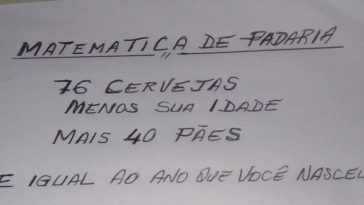 MATEMATIÇA DE PADARIA
76 CERVEJAS
MENOS SUA IDADE
MAIS 40 PÃES
E IGUAL AO ANO QUE VOCÊ NASCEU